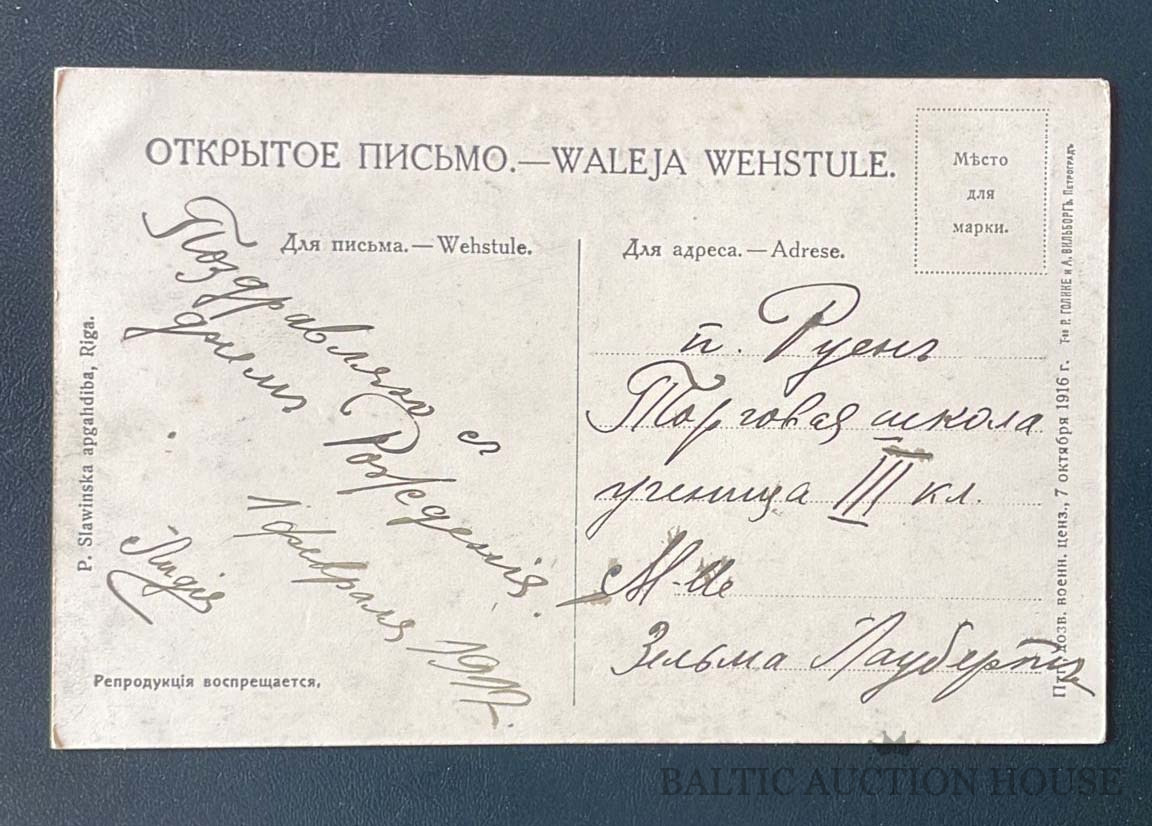 ОТКРЫТОЕ ПИСЬМО.—WALEJA WEHSTULE.
Мѣсто
для
марки.
Для письма.—Wehstule.
Для адреса.—Adrese.
Поздравляю с
днемъ Рожденія.
1 февраля 1917.
Лидія
п. Руенъ
Торговая школа
ученица III кл.
М-lle
Зельма Лауберт
P. Slawinska apgahdiba, Riga.
Репродукція воспрещается,
дозв. военн. ценз., 7 октября 1916 г. Т-во Р. ГОЛИКЕ и А. ВИЛЬБОРГЪ. ПЕТРОГРАДЪ
BALTIC AUCTION HOUSE